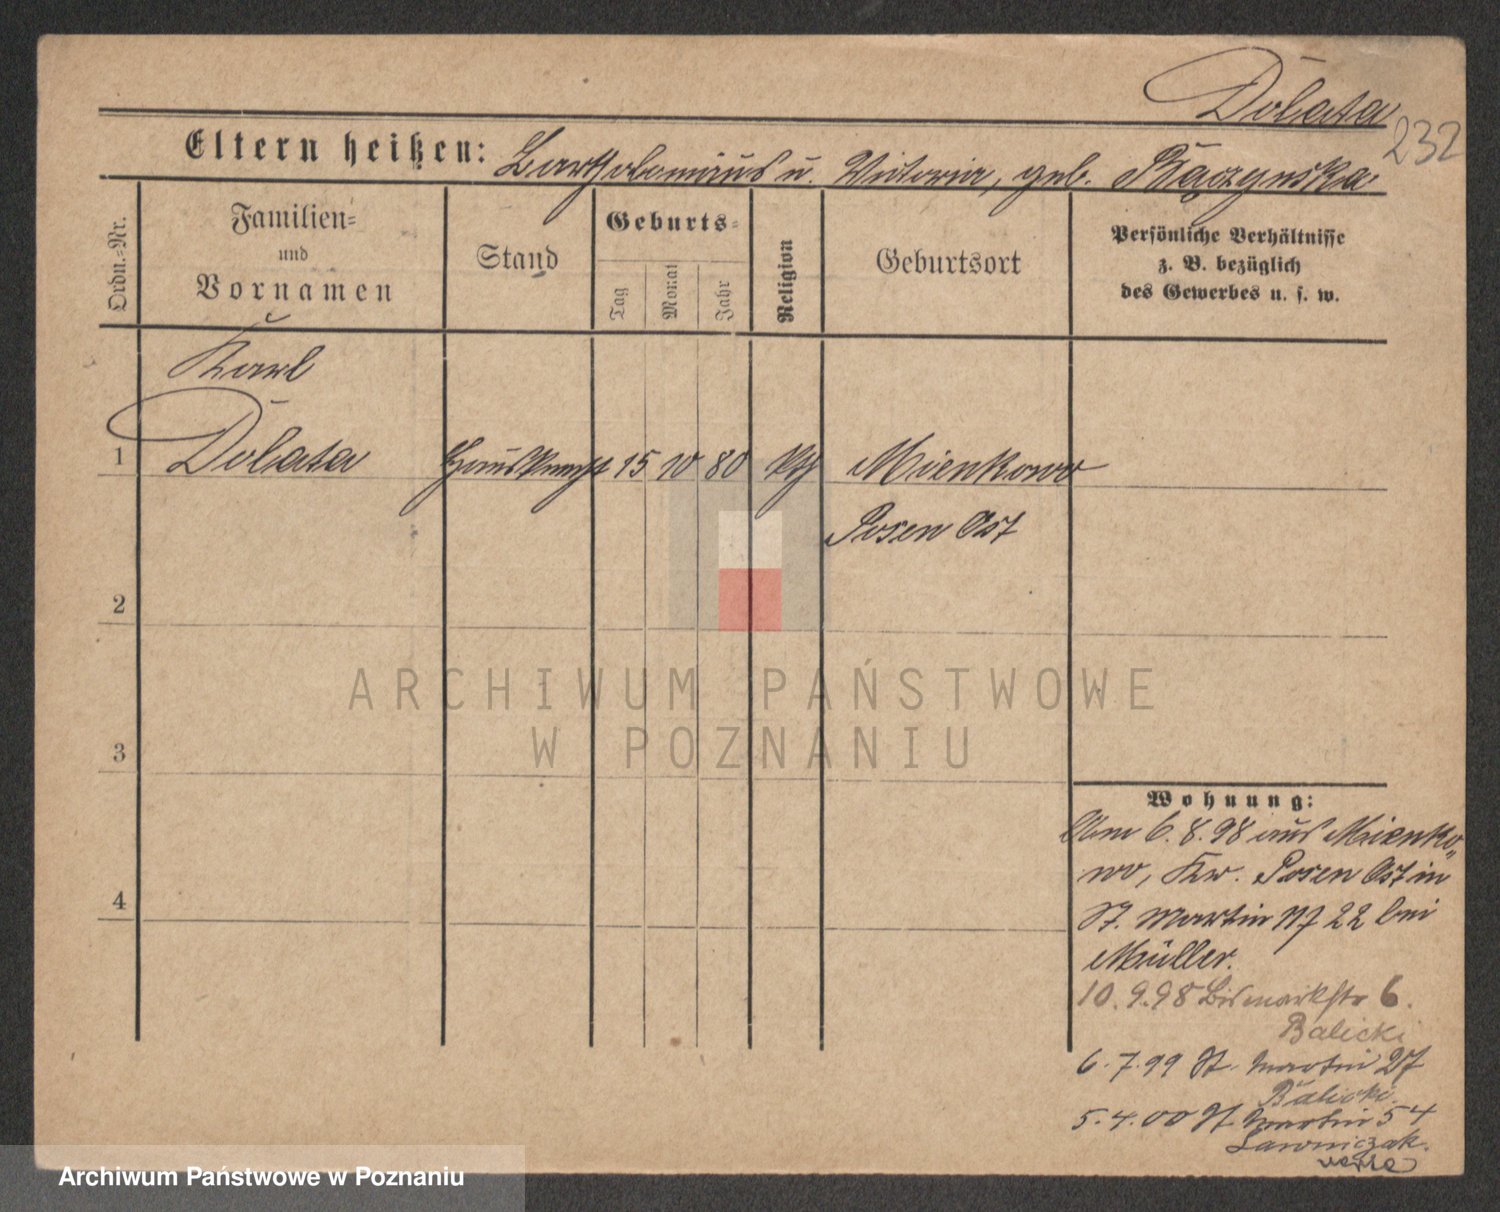 Dolata
232
Eltern heißen: Bartholomäus u. Victoria, geb. Rączynska
Ordn.-Nr.
Familien-
und
Vornamen
Stand
Geburts-
Tag
Monat
Jahr
Religion
Geburtsort
Persönliche Verhältnisse
z. B. bezüglich
des Gewerbes u. s. w.
Karl
1 Dolata Hausknecht 15 10 80 kth Mienkowo
Posen Ost
2
3
4
Wohnung:
Am 6.8.98 aus Mienko„
wo, Kr. Posen Ost in
St. Martin № 22 bei
Müller.
10.9.98 Bismarkstr 6.
Balicki
6.7.99 St. Martin 27
Balicki.
5.4.00 St. Martin 54
Lawniczak.
verte
ARCHIWUM PAŃSTWOWE
W POZNANIU
Archiwum Państwowe w Poznaniu